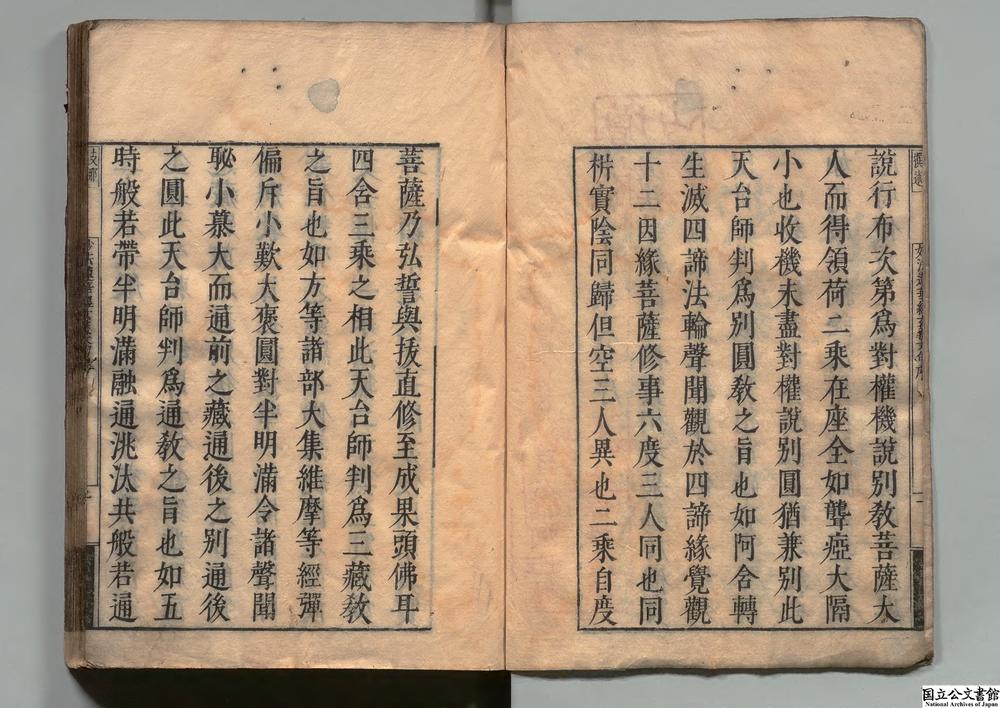 說行布次第爲對權機說別敎菩薩大
人而得領荷二乘在座全如聾瘂大隔
小也收機未盡對權說別圓猶兼別此
天台師判爲別圓敎之旨也如阿含轉
生滅四諦法輪聲聞觀於四諦緣覺觀
十二因緣菩薩修事六度三人同也同
柝實陰同歸但空三人異也二乘自度
菩薩乃弘誓與拔直修至成果頭佛耳
四含三乘之相此天台師判爲三藏敎
之旨也如方等諸部大集維摩等經彈
偏斥小歎大褒圓對半明滿令諸聲聞
恥小慕大而通前之藏通後之別通後
之圓此天台師判爲通敎之旨也如五
時般若帶半明滿融通洮汰共般若通
国立公文書館
National Archives of Japan